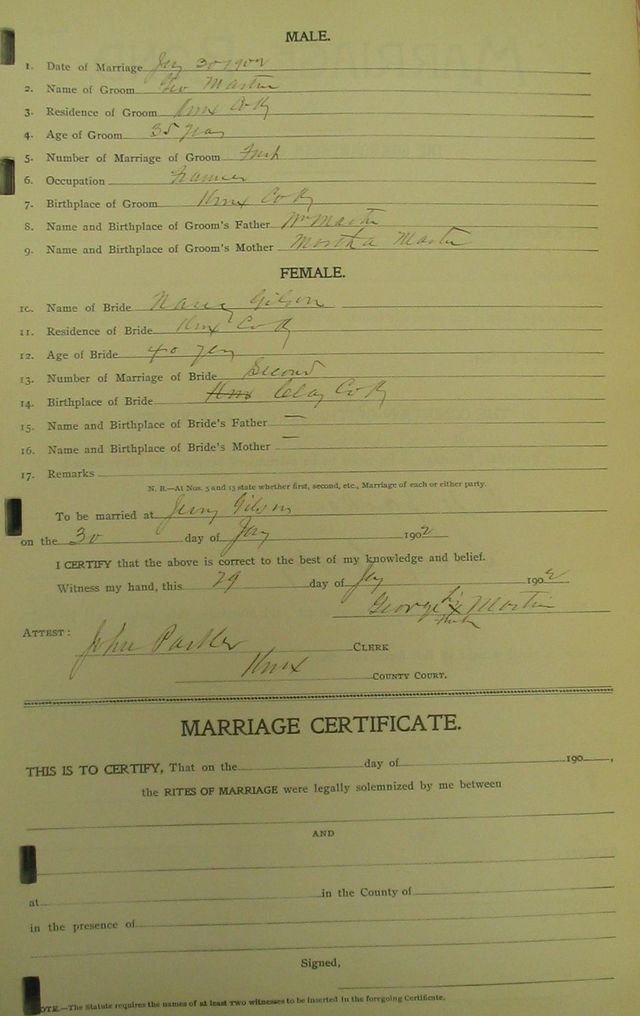 MALE.
1. Date of Marriage Jay 30 1902
2. Name of Groom Geo Martin
3. Residence of Groom Knx Co Ky
4. Age of Groom 35 years
5. Number of Marriage of Groom First
6. Occupation Farmer
7. Birthplace of Groom Knx Co Ky
8. Name and Birthplace of Groom's Father Wm Martin
9. Name and Birthplace of Groom's Mother Martha Martin
FEMALE.
10. Name of Bride Nancy Gibson
11. Residence of Bride Knx Co Ky
12. Age of Bride 40 yers
13. Number of Marriage of Bride Second
14. Birthplace of Bride Knx Clay Co Ky
15. Name and Birthplace of Bride's Father —
16. Name and Birthplace of Bride's Mother —
17. Remarks
N. B.—At Nos. 5 and 13 state whether first, second, etc., Marriage of each or either party.
To be married at Gibson
on the 30 day of Jay 1902
I CERTIFY that the above is correct to the best of my knowledge and belief.
Witness my hand, this 29 day of Jay 1902
George his x Martin
mark
ATTEST: John Parker CLERK
Knx COUNTY COURT.
MARRIAGE CERTIFICATE.
THIS IS TO CERTIFY, That on the day of 190 ,
the RITES OF MARRIAGE were legally solemnized by me between
AND
at in the County of
in the presence of
Signed,
NOTE.—The Statute requires the names of at least two witnesses to be inserted in the foregoing Certificate.